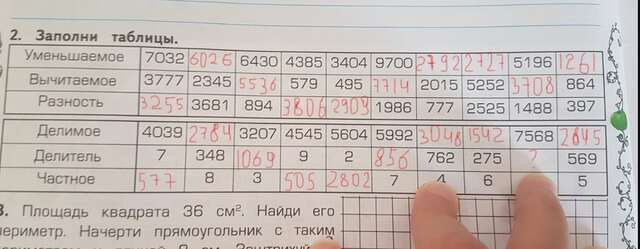 2. Заполни таблицы.
Уменьшаемое 7032 6026 6430 4385 3404 9700 2792 2727 5196 1261
Вычитаемое 3777 2345 5536 579 495 7714 2015 5252 3708 864
Разность 3255 3681 894 3806 2909 1986 777 2525 1488 397
Делимое 4039 2784 3207 4545 5604 5992 3048 1542 7568 2845
Делитель 7 348 1069 9 2 856 762 275 569
Частное 577 8 3 505 2802 7 4 6 5
3. Площадь квадрата 36 см². Найди его
периметр. Начерти прямоугольник с таким